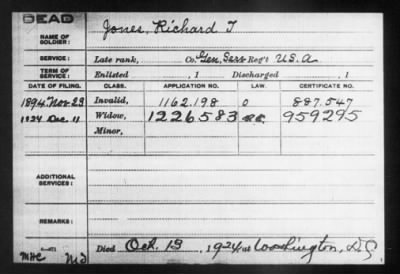 DEAD
NAME OF SOLDIER: Jones, Richard T
SERVICE: Late rank, Co. Gen, Serv Reg't U.S.A
TERM OF SERVICE: Enlisted , 1 Discharged , 1
DATE OF FILING. CLASS. APPLICATION NO. LAW. CERTIFICATE NO.
1894 Nov 23 Invalid, 1162.198 O 887.547
1924 Dec 11 Widow, 1226583 959295
Minor,
ADDITIONAL SERVICES:
REMARKS:
Died Oct. 19, 1924 at Washington, D.C.